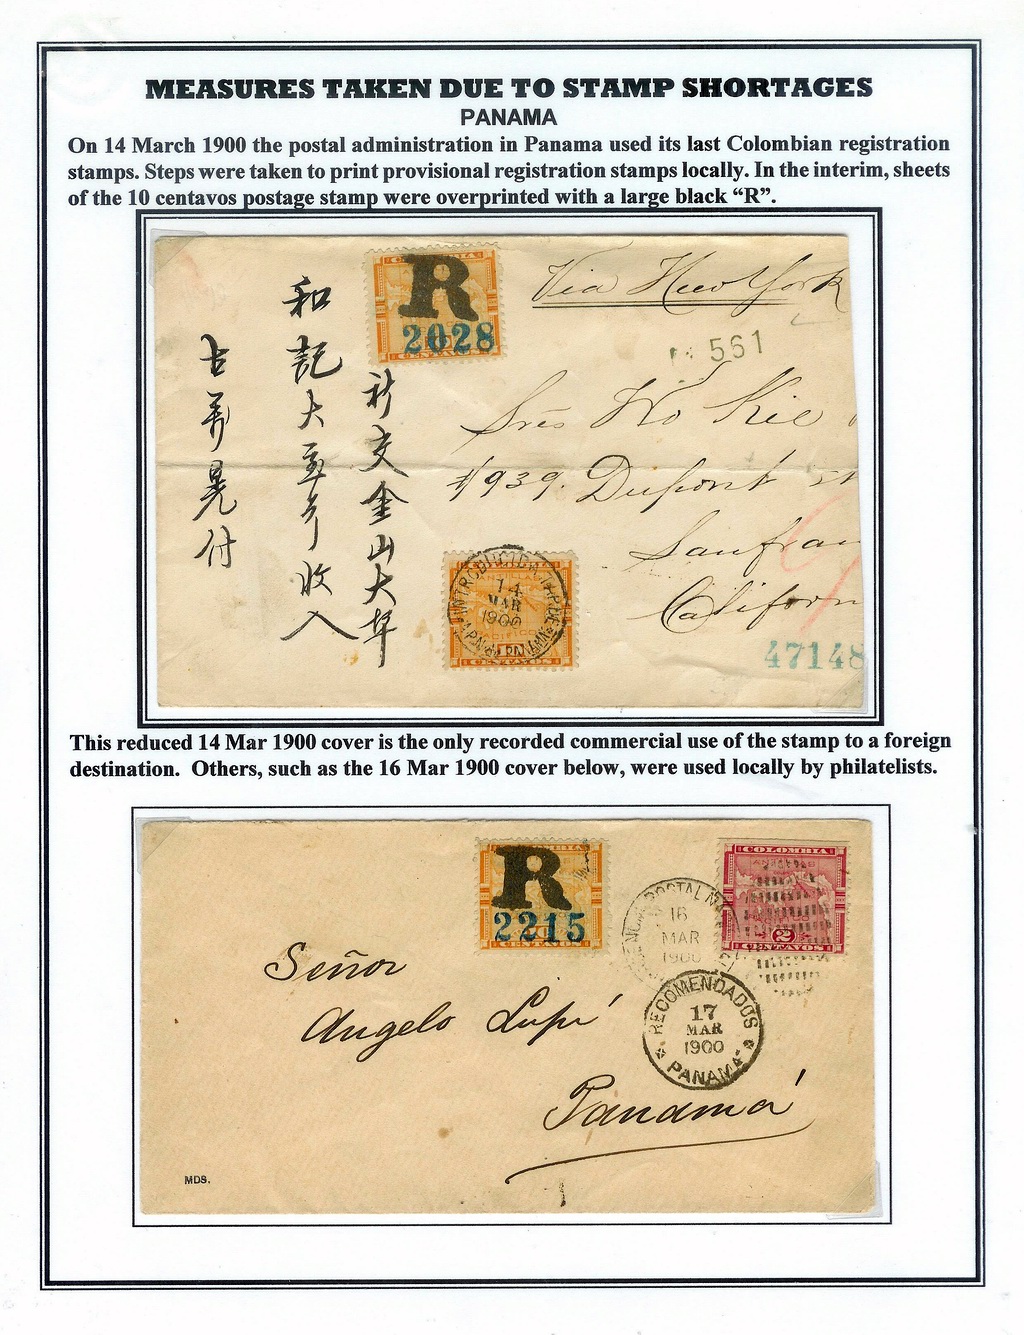 MEASURES TAKEN DUE TO STAMP SHORTAGES
PANAMA
On 14 March 1900 the postal administration in Panama used its last Colombian registration
stamps. Steps were taken to print provisional registration stamps locally. In the interim, sheets
of the 10 centavos postage stamp were overprinted with a large black “R”.
R
2028
CENTAVOS
Via New York
561
Sres Wo Kie
#939. Dupont st
San Fran
Californ
47148
交金山大埠
和記大寶號收入
付
14
MAR
1900
CENTAVOS
This reduced 14 Mar 1900 cover is the only recorded commercial use of the stamp to a foreign
destination. Others, such as the 16 Mar 1900 cover below, were used locally by philatelists.
R
2215
CENTAVOS
COLOMBIA
2
CENTAVOS
POSTAL
16
MAR
1900
RECOMENDADOS
17
MAR
1900
PANAMA
Señor
Angelo Lupi
Panamá
MDS.